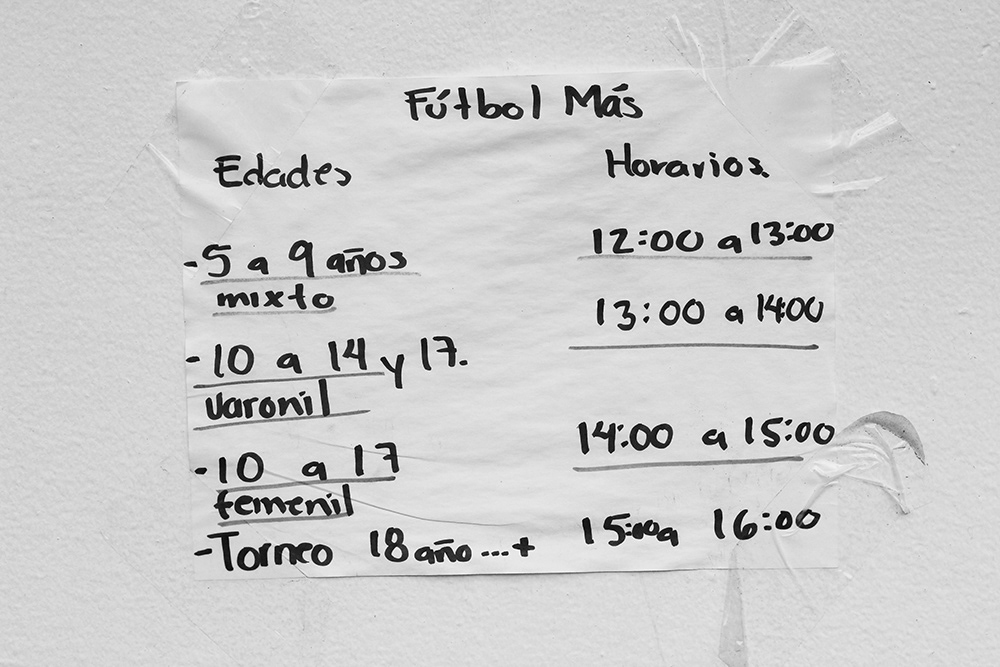 Fútbol Más
Edades Horarios
-5 a 9 años 12:00 a 13:00
mixto
13:00 a 14:00
-10 a 14 y 17.
varonil
14:00 a 15:00
-10 a 17
femenil
-Torneo 18 año...+ 15:00 a 16:00